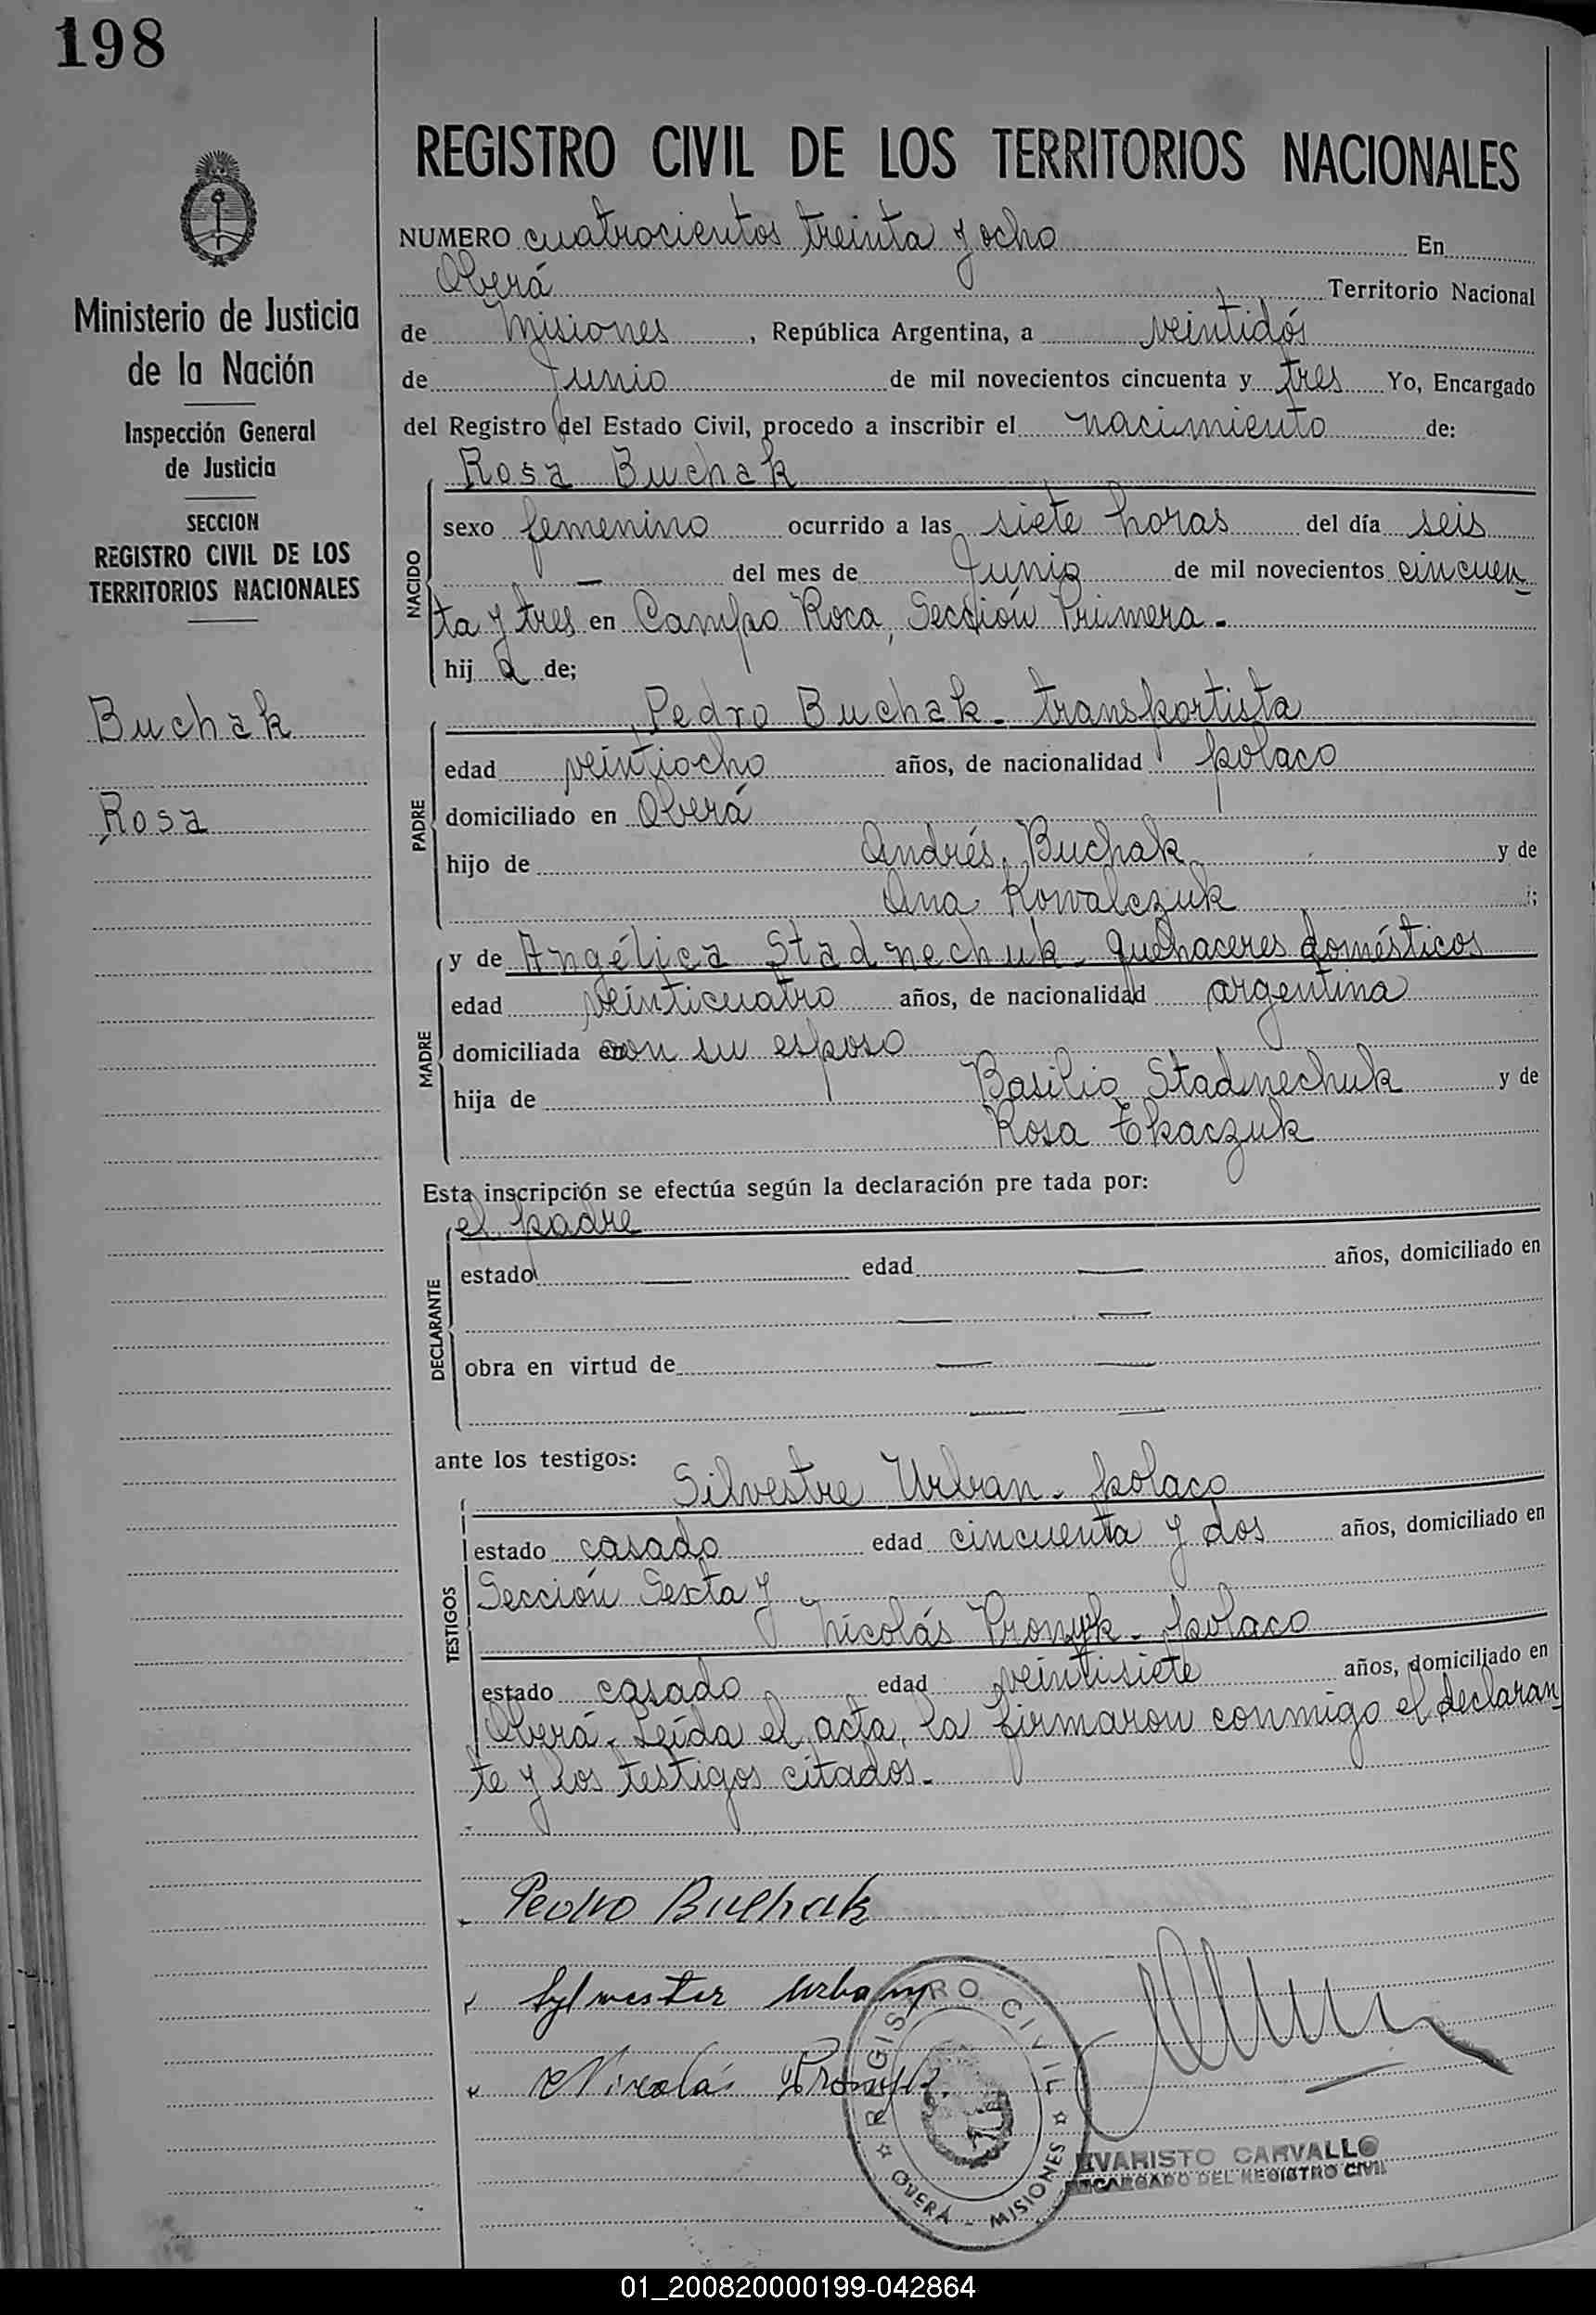 198
Ministerio de Justicia
de la Nación
Inspección General
de Justicia
SECCION
REGISTRO CIVIL DE LOS
TERRITORIOS NACIONALES
Buchak
Rosa
REGISTRO CIVIL DE LOS TERRITORIOS NACIONALES
NUMERO cuatrocientos treinta y ocho En
Oberá Territorio Nacional
de Misiones, República Argentina, a veintidós
de Junio de mil novecientos cincuenta y tres Yo, Encargado
del Registro del Estado Civil, procedo a inscribir el nacimiento de:
Rosa Buchak
NACIDO
sexo femenino ocurrido a las siete horas del día seis
— del mes de Junio de mil novecientos cincuen
ta y tres en Campo Roca, Sección Primera.-
hija de;
Pedro Buchak - transportista
PADRE
edad veintiocho años, de nacionalidad polaco
domiciliado en Oberá
hijo de Andrés Buchak y de
Ana Kowalczuk ;
y de Angélica Stadnechuk - quehaceres domésticos
MADRE
edad veinticuatro años, de nacionalidad argentina
domiciliada en con su esposo
hija de Basilio Stadnechuk y de
Rosa Tkaczuk
Esta inscripción se efectúa según la declaración pre tada por:
el padre
DECLARANTE
estado — edad — años, domiciliado en
— —
obra en virtud de — —
— —
ante los testigos:
Silvestre Urban - polaco
TESTIGOS
estado casado edad cincuenta y dos años, domiciliado en
Sección Sexta y
Nicolás Pronyk - polaco
estado casado edad veintisiete años, domiciliado en
Oberá.- Leída el acta, la firmaron conmigo el declaran
te y los testigos citados.-
Pedro Buchak
Sylwester Urban
Nicolás Pronyk.
REGISTRO CIVIL
OBERÁ - MISIONES
EVARISTO CARVALLO
ENCARGADO DEL REGISTRO CIVIL
01_200820000199-042864